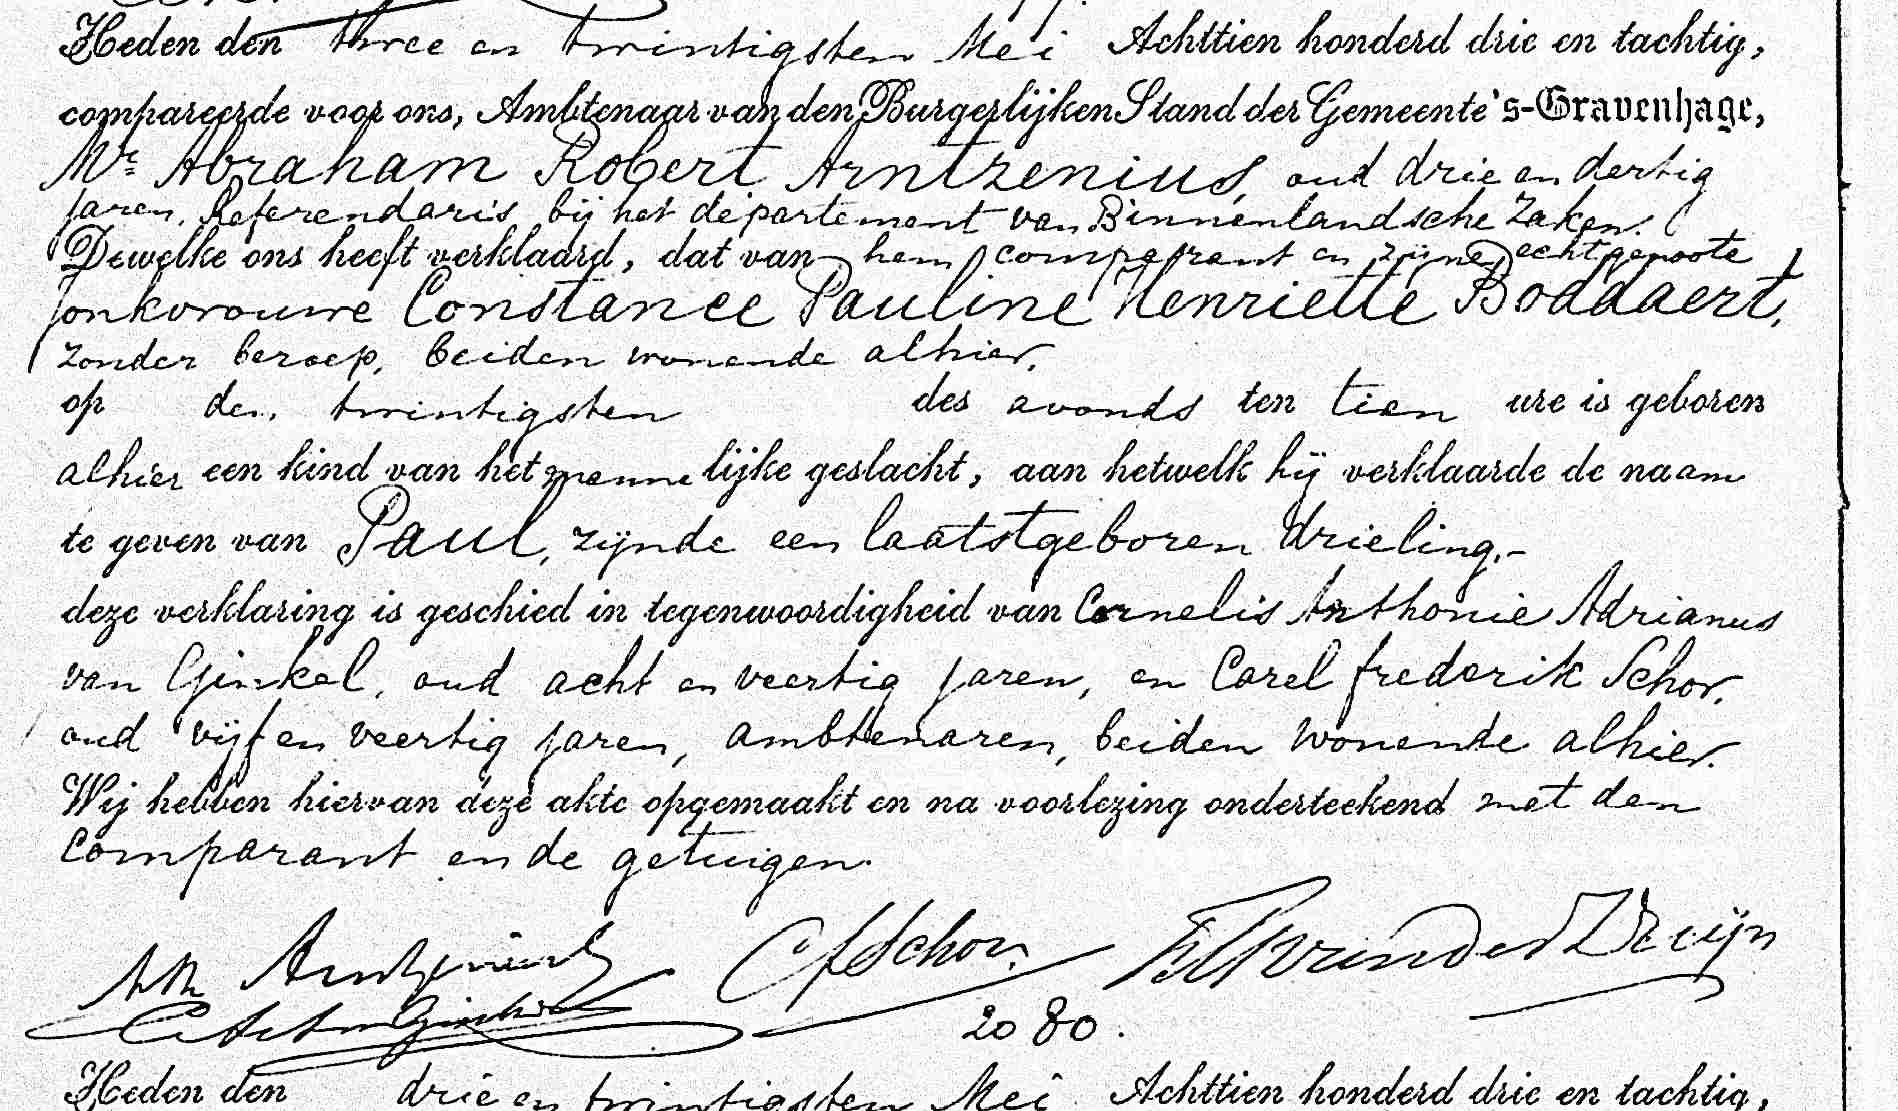 Heden den three en twintigsten Mei Achttien honderd drie en tachtig,
compareerde voor ons, Ambtenaar van den Burgerlijken Stand der Gemeente 's-Gravenhage,
Mr. Abraham Robert Arntzenius, oud drie en dertig
jaren, Referendaris bij het departement van Binnenlandsche Zaken.
Dewelke ons heeft verklaard, dat van hem comparant en zijne echtgenoote
Jonkvrouwe Constance Pauline Henriette Boddaert,
zonder beroep, beiden wonende alhier,
op den twintigsten des avonds ten tien ure is geboren
alhier een kind van het mannelijke geslacht, aan hetwelk hij verklaarde de naam
te geven van Paul, zijnde een laatstgeboren drieling.-
deze verklaring is geschied in tegenwoordigheid van Cornelis Anthonie Adrianus
van Ginkel, oud acht en veertig jaren, en Carel frederik Schor,
oud vijf en veertig jaren, ambtenaren, beiden wonende alhier.
Wij hebben hiervan deze akte opgemaakt en na voorlezing onderteekend met den
Comparant en de getuigen.
AR Arntzenius CF Schor.
2080.
Heden den drie en twintigsten Mei Achttien honderd drie en tachtig,